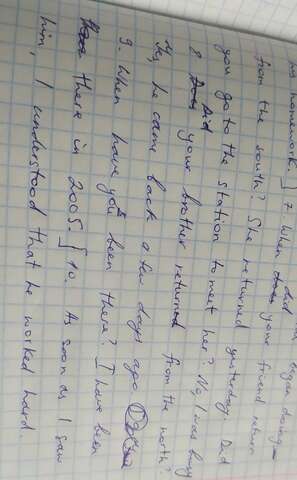 his homework. ] 7. When did you began doing
from the south? She returned yesterday. Did
you go to the station to meet her? No, I was busy
8 Did your brother returned from the north?
Yes, he came back a few days ago
9. When have you been there? I have been
there in 2005. ] 10. As soon as I saw
him, I understood that he worked hard.